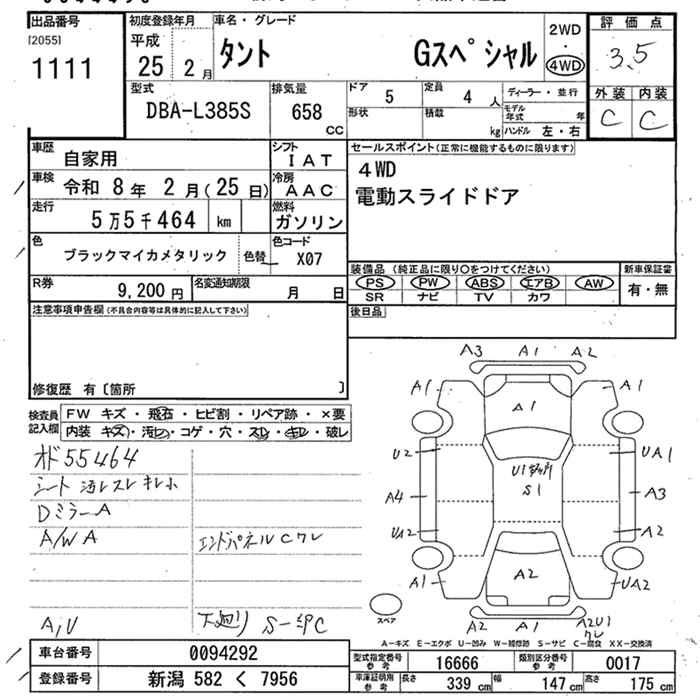 出品番号
[2055]
1111
初度登録年月
平成
25 2月
車名・グレード
タント Gスペシャル
2WD
・
4WD
評価点
3.5
外装 内装
C C
型式
DBA-L385S
排気量
658
CC
ドア 5
形状
定員 4 人
積載 kg
ディーラー・並行
モデル年式 年
ハンドル 左・右
車歴 自家用
シフト
IAT
車検 令和 8年 2月(25日)
冷房
AAC
走行 5万5千464 km
燃料
ガソリン
色 ブラックマイカメタリック 色替
色コード
X07
R券 9,200円
名変通知期限 月 日
セールスポイント(正常に機能するものに限ります)
4WD
電動スライドドア
装備品 (純正品に限り○をつけてください)
PS PW ABS エアB AW
SR ナビ TV カワ
新車保証書
有・無
後日品
注意事項申告欄(不具合内容等は具体的に記入して下さい)
修復歴 有〔箇所 〕
検査員記入欄
FW キズ・飛石・ヒビ割・リペア跡・×要
内装 キズ・汚レ・コゲ・穴・スレ・キレ・破レ
オド55464
シート 汚レスレキレ小
DミラーA
A/W A
エンドパネルCワレ
A,U
下廻り S-錆C
A3 A1 A2
A1 A1
A1
U2 UA1
U1
S1
A4 A3
UA2 A2
A2
A1 UA2
スペア
A2 A1 A2U1
ワレ
A-キズ E-エクボ U-凹み W-補修跡 S-サビ C-腐食 XX-交換済
車台番号 0094292
登録番号 新潟 582 く 7956
型式指定番号
参考
16666
類別区分番号
参考
0017
車庫証明用
参考
長さ 339 cm 幅 147 cm 高さ 175 cm